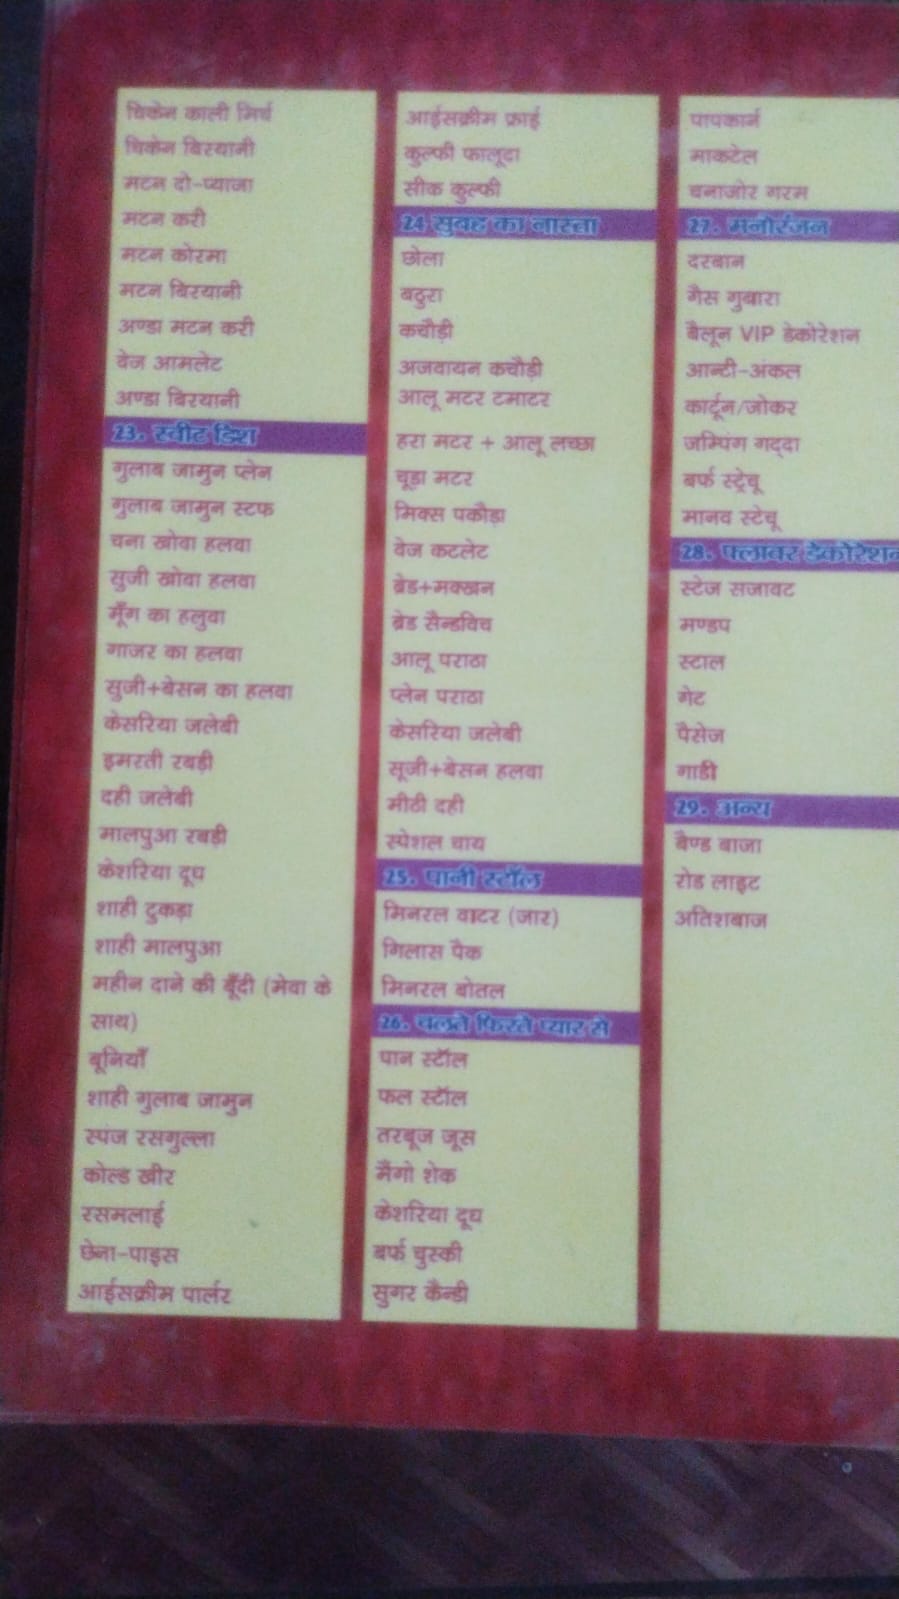 चिकेन काली मिर्च
चिकेन बिरयानी
मटन दो-प्याजा
मटन करी
मटन कोरमा
मटन बिरयानी
अण्डा मटन करी
वेज आमलेट
अण्डा बिरयानी
23. स्वीट डिश
गुलाब जामुन प्लेन
गुलाब जामुन स्टफ
चना खोवा हलवा
सुजी खोवा हलवा
मूँग का हलुवा
गाजर का हलवा
सुजी+बेसन का हलवा
केसरिया जलेबी
इमरती रबड़ी
दही जलेबी
मालपुआ रबड़ी
केशरिया दूध
शाही टुकड़ा
शाही मालपुआ
महीन दाने की बूँदी (मेवा के
साथ)
बूनियाँ
शाही गुलाब जामुन
स्पंज रसगुल्ला
कोल्ड खीर
रसमलाई
छेना-पाइस
आईसक्रीम पार्लर
आईसक्रीम फ्राई
कुल्फी फालूदा
सीक कुल्फी
24 सुबह का नास्ता
छोला
बठुरा
कचौड़ी
अजवायन कचौड़ी
आलू मटर टमाटर
हरा मटर + आलू लच्छा
चूड़ा मटर
मिक्स पकौड़ा
वेज कटलेट
ब्रेड+मक्खन
ब्रेड सैन्डविच
आलू पराठा
प्लेन पराठा
केसरिया जलेबी
सूजी+बेसन हलवा
मीठी दही
स्पेशल चाय
25. पानी स्टॉल
मिनरल वाटर (जार)
गिलास पैक
मिनरल बोतल
26. चलते फिरते प्यार से
पान स्टॉल
फल स्टॉल
तरबूज जूस
मैंगो शेक
केशरिया दूध
बर्फ चुस्की
सुगर कैन्डी
पापकार्न
माकटेल
चनाजोर गरम
27. मनोरंजन
दरबान
गैस गुबारा
बैलून VIP डेकोरेशन
आन्टी-अंकल
कार्टून/जोकर
जम्पिंग गद्दा
बर्फ स्ट्रेचू
मानव स्टेचू
28. फ्लावर डेकोरेशन
स्टेज सजावट
मण्डप
स्टाल
गेट
पैसेज
गाडी
29. अन्य
बैण्ड बाजा
रोड लाइट
अतिशबाज